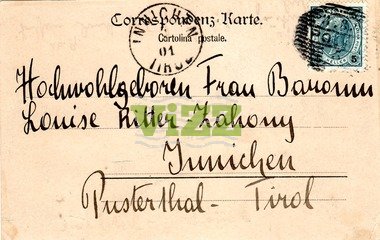 Correspondenz-Karte.
Cartolina postale.
INNICHEN
01
TIROL
5
Hochwohlgeboren Frau Baronin
Louise Ritter-Zahony
ViZZ
Innichen
Pusterthal- Tirol